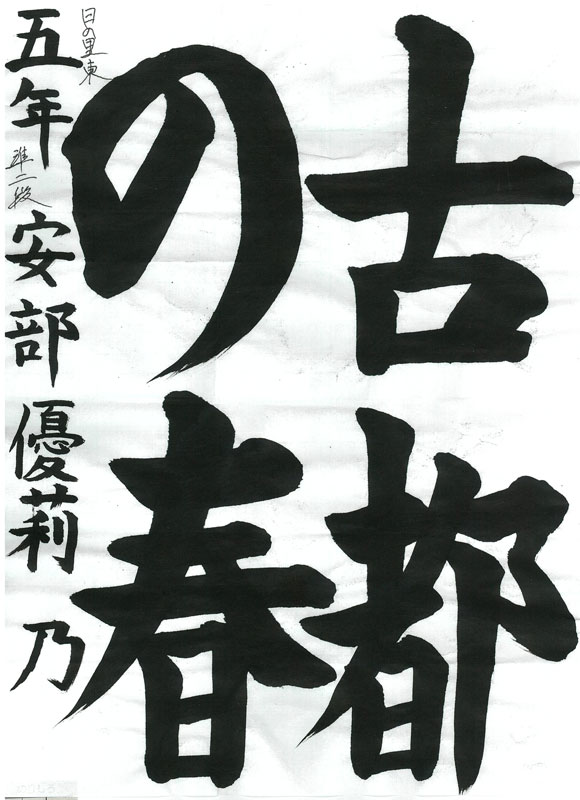 古都
の春
日の里東
五年 準二段 安部優莉乃